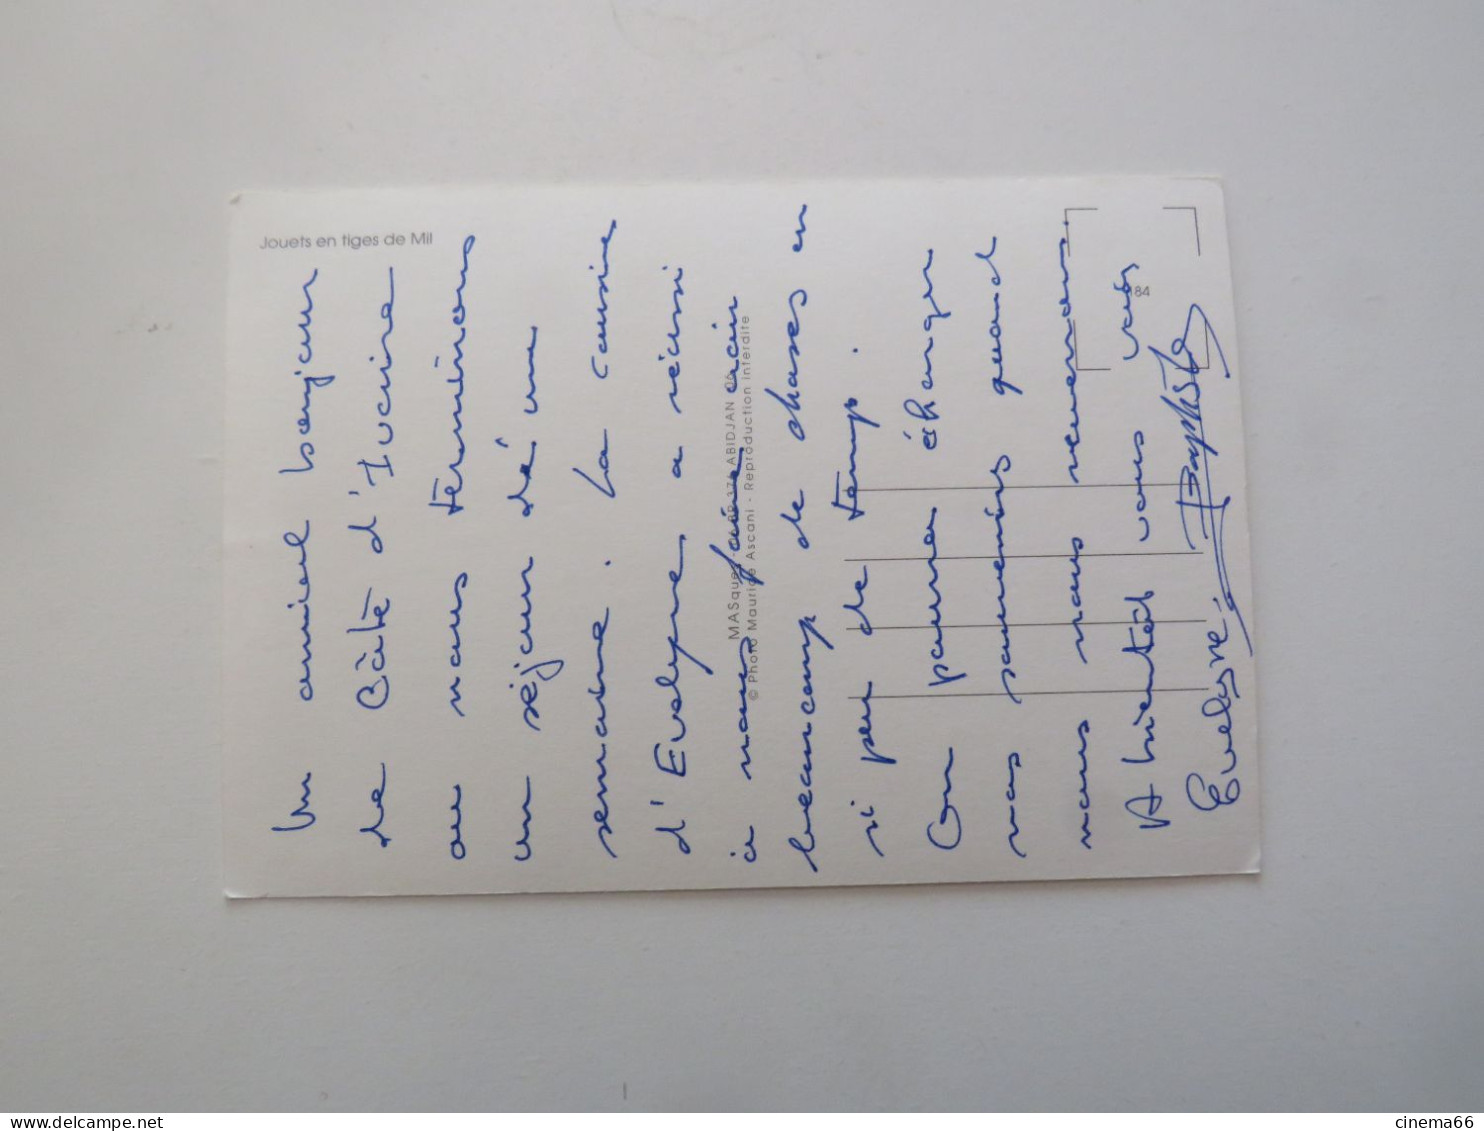 Jouets en tiges de Mil
Un amical bonjour
de Côte d'Ivoire
ou nous terminons
un séjour d'une
semaine. La cousine
d'Evelyne, a réussi
a nous faire voir
beaucoup de choses en
si peu de temps.
On pourra échanger
nos souvenirs quand
nous nous reverrons.
A bientôt vous voir
Evelyne
MASques - BP 376 ABIDJAN 06
© Photo Maurice Ascani - Reproduction interdite
84
cinema66